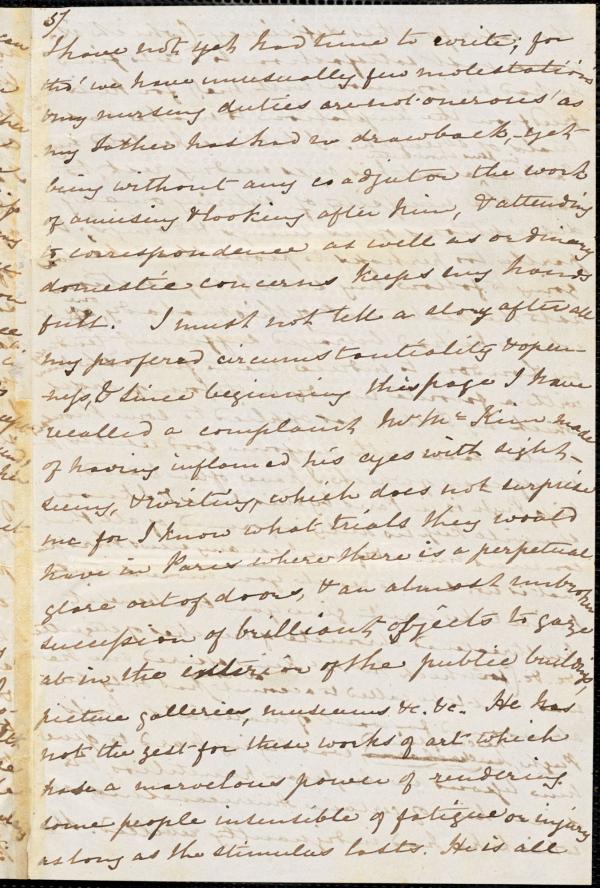 5/
I have not yet had time to write; for
tho' we have unusually few molestations
my nursing duties are not onerous as
my Father has had no drawback, yet
being without any coadjutor the work
of amusing & looking after him, & attending
to correspondence as well as ordinary
domestic concerns keeps my hands
full. I must not tell a story after all
my profered circumstantiality & open-
ness, & since beginning this page I have
recalled a complaint Mr McKim made
of having inflamed his eyes with sight-
seeing, & writing, which does not surprise
me for I know what trials they would
have in Paris where there is a perpetual
glare out of doors, & an almost unbroken
succession of brilliant objects to gaze
at in the interior of the public buildings,
picture galleries, museums &c. &c. He has
not the zest for these works of art which
has a marvelous power of rendering
some people insensible of fatigue or injury
as long as the stimulus lasts. He is all